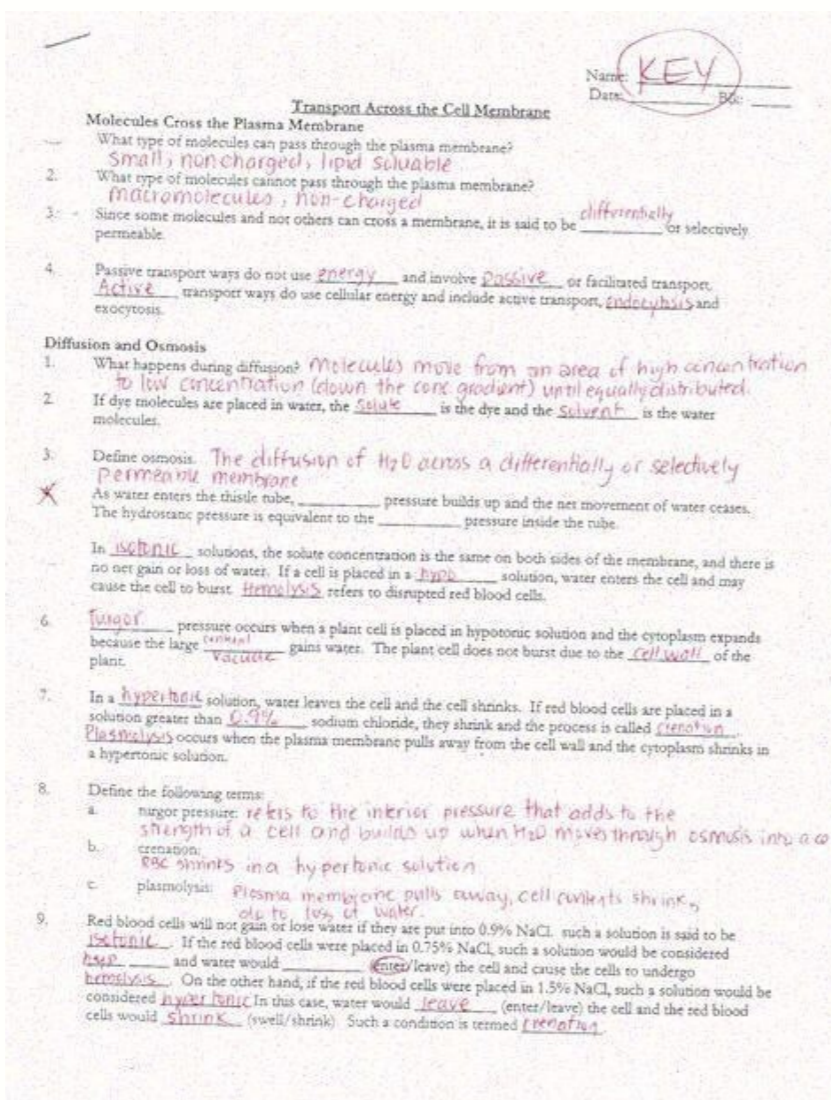 KEY
Name: ___________
Date: ___________ Blk: _____
Transport Across the Cell Membrane
Molecules Cross the Plasma Membrane
What type of molecules can pass through the plasma membrane?
Small, noncharged, lipid soluable
2. What type of molecules cannot pass through the plasma membrane?
Macromolecules, non-charged
differentially
3. Since some molecules and not others can cross a membrane, it is said to be __________ or selectively
permeable.
4. Passive transport ways do not use energy and involve passive or facilitated transport.
Active transport ways do use cellular energy and include active transport, endocytosis and
exocytosis.
Diffusion and Osmosis
1. What happens during diffusion? Molecules move from an area of high concentration
to low concentration (down the conc. gradient) until equally distributed.
2. If dye molecules are placed in water, the solute is the dye and the solvent is the water
molecules.
3. Define osmosis. The diffusion of H2O across a differentially or selectively
permeable membrane
As water enters the thistle tube, __________ pressure builds up and the net movement of water ceases.
The hydrostatic pressure is equivalent to the __________ pressure inside the tube.
In isotonic solutions, the solute concentration is the same on both sides of the membrane, and there is
no net gain or loss of water. If a cell is placed in a hypo solution, water enters the cell and may
cause the cell to burst. Hemolysis refers to disrupted red blood cells.
6. Turgor pressure occurs when a plant cell is placed in hypotonic solution and the cytoplasm expands
because the large central vacuole gains water. The plant cell does not burst due to the cell wall of the
plant.
7. In a hypertonic solution, water leaves the cell and the cell shrinks. If red blood cells are placed in a
solution greater than 0.9% sodium chloride, they shrink and the process is called crenation.
Plasmolysis occurs when the plasma membrane pulls away from the cell wall and the cytoplasm shrinks in
a hypertonic solution.
8. Define the following terms:
a. turgor pressure: refers to the interior pressure that adds to the
strength of a cell and builds up when H2O moves through osmosis into a ce
b. crenation:
RBC shrinks in a hypertonic solution
c. plasmolysis: Plasma membrane pulls away, cell contents shrink,
due to loss of water.
9. Red blood cells will not gain or lose water if they are put into 0.9% NaCl. such a solution is said to be
isotonic. If the red blood cells were placed in 0.75% NaCl, such a solution would be considered
hypo and water would __________ (enter/leave) the cell and cause the cells to undergo
hemolysis. On the other hand, if the red blood cells were placed in 1.5% NaCl, such a solution would be
considered hypertonic In this case, water would leave (enter/leave) the cell and the red blood
cells would shrink (swell/shrink). Such a condition is termed crenation.